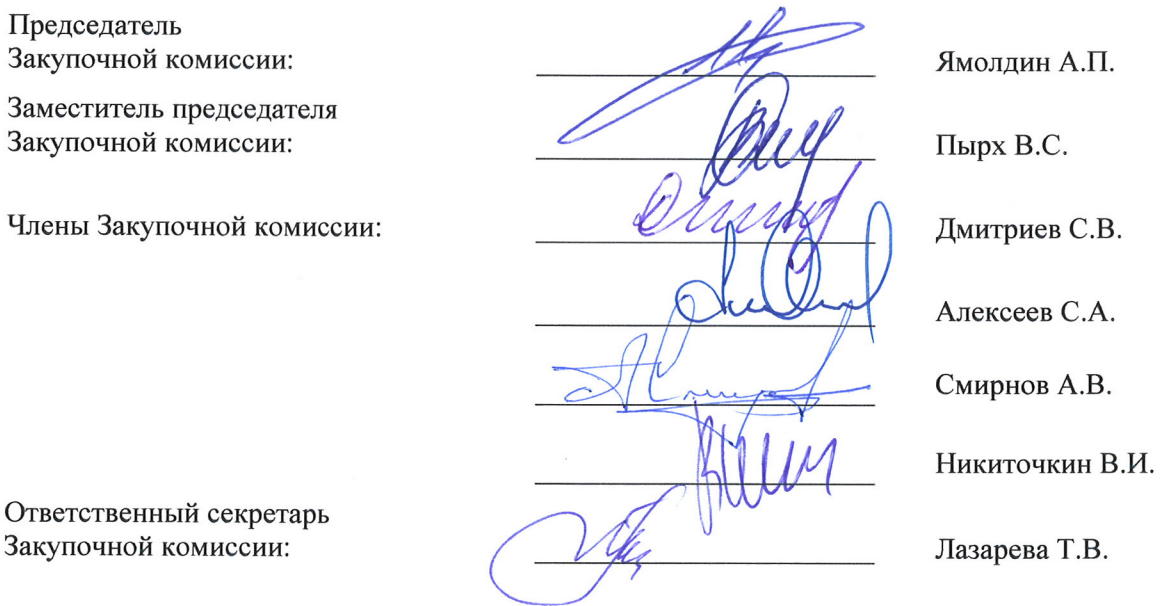 Председатель
Закупочной комиссии: Ямолдин А.П.
Заместитель председателя
Закупочной комиссии: Пырх В.С.
Члены Закупочной комиссии: Дмитриев С.В.
Алексеев С.А.
Смирнов А.В.
Никиточкин В.И.
Ответственный секретарь
Закупочной комиссии: Лазарева Т.В.